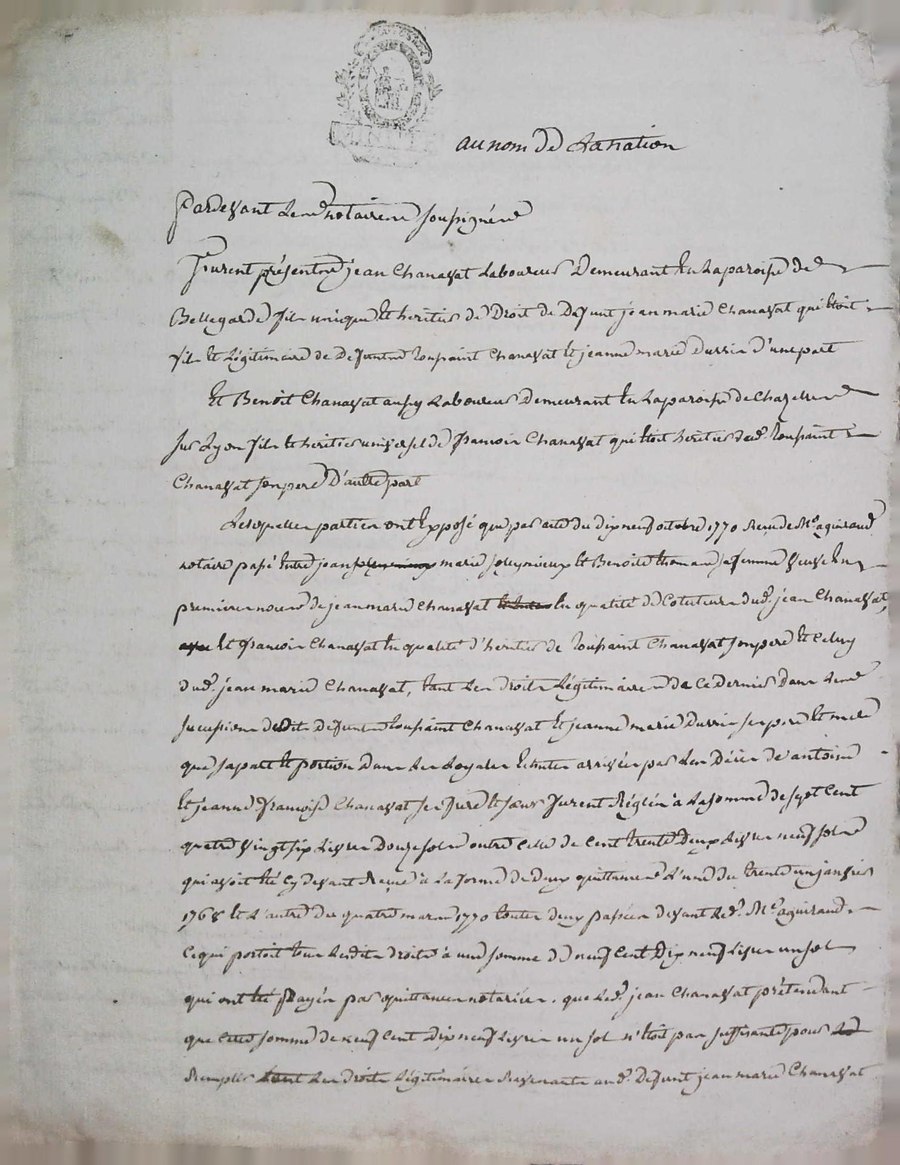 au nom de la nation
Pardevant les notaires soussignés
Furent présents jean Chanavat Laboureur Demeurant En la paroisse de
Bellegarde fils unique Et heritier de Droit de Defunt jean marie Chanavat qui Etoit
fils Et Légitimaire de Defunts toussaint Chanavat Et jeanne marie Durris d'une part
Et Benoit Chanavat aussy Laboureur Demeurant En la paroisse de Chazelles
sur Lyon fils Et heritier universel de francois Chanavat qui Etoit heritier dud. toussaint
Chanavat son pere D'autre part
Lesquelles parties ont Exposé que par acte du dix neuf octobre 1770 Reçu de Me. aguiraud
notaire passé Entre jean marie Et Benoite thomas sa femme veuve En
premieres noces de jean marie Chanavat En qualité de Cotuteurs dud. jean Chanavat,
Et francois Chanavat En qualité d'heritier de toussaint Chanavat son pere Et Celuy
dud. jean marie Chanavat, tant Les droits Légitimaires de Ce Dernier Dans Les
successions desdits Defunts toussaint Chanavat Et jeanne marie Durris ses pere Et mere
que sa part Et portion Dans Les Loyales Echutes arrivées par Les Décès de antoine
Et jeanne francoise Chanavat ses frere Et sœur furent Réglés à La somme de sept Cent
quatre vingt six Livres Douze sols outre Celle de Cent trente Deux Livres neuf sols
qui avoit Eté Cy devant Reçue à La forme de deux quittances L'une du trente un janvier
1768 Et L'autre du quatre mars 1770 toutes deux passées devant Led. Me. aguiraud.
Ce qui portoit tous Lesdits droits à une somme de neuf Cent Dix neuf Livres un sol
qui ont Eté payés par quittances notariées. que Led. jean Chanavat prétendant
que Cette somme de neuf Cent Dix neuf Livres un sol n'Etoit pas suffisante pour
Remplir Les droits Légitimaires Revenants aud. Defunt jean marie Chanavat